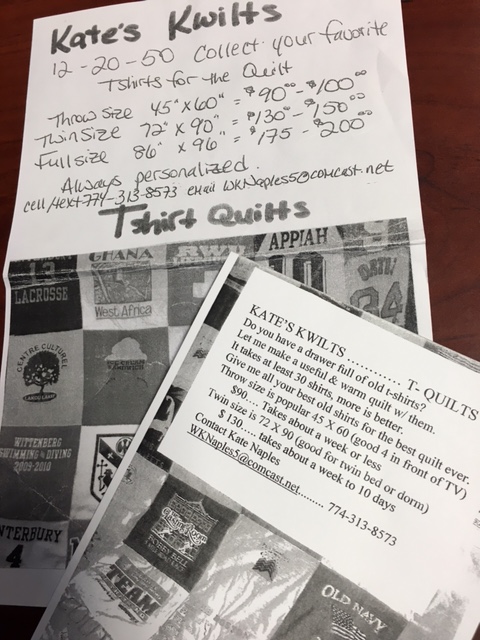 Kate's Kwilts
12-20-50 Collect your favorite
Tshirts for the Quilt
Throw size 45" x 60" = $90⁰⁰ - $100⁰⁰
Twin size 72" x 90" = $130⁰⁰ - $150⁰⁰
Full size 86" x 96" = $175 - $200⁰⁰
Always personalized.
cell/text-774-313-8573 email WKNaples5@comcast.net
Tshirt Quilts
13
LACROSSE
GHANA
West Africa
APPIAH
34
CENTRE CULTUREL
WITTENBERG
SWIMMING & DIVING
2009-2010
NTERBURY
4
KATE'S KWILTS ............ T- QUILTS
Do you have a drawer full of old t-shirts?
Let me make a useful & warm quilt w/ them.
It takes at least 30 shirts, more is better.
Give me all your best old shirts for the best quilt ever.
Throw size is popular 45 X 60 (good 4 in front of TV)
$90.... Takes about a week or less
Twin size is 72 X 90 (good for twin bed or dorm)
$ 130.... takes about a week to 10 days
Contact Kate Naples
WKNaples5@comcast.net......... 774-313-8573
TEAM
OLD NAVY